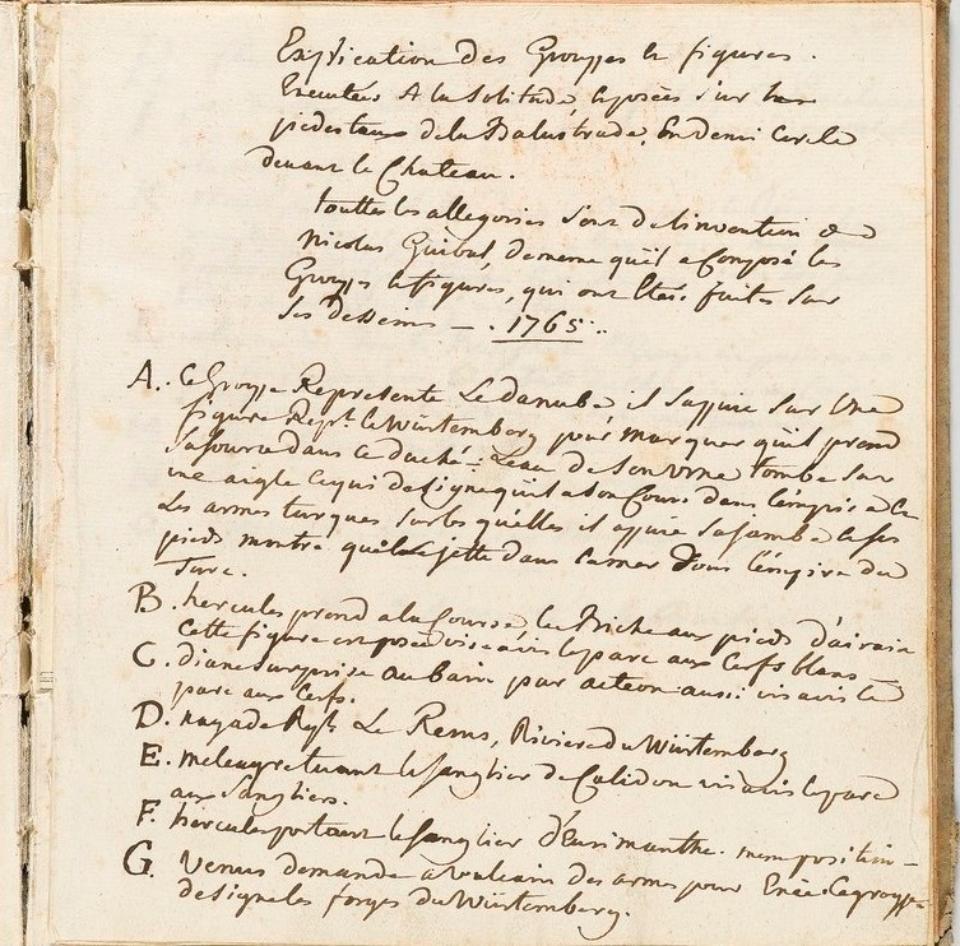 Explication des Grouppes & figures.
Executées A la Solitude, & posées sur les
piedestaux dela Balustrade, En demi Cercle
devant le Chateau.
touttes les allegories sont de linvention de
Nicolas Guibal, de meme qu'il a Composé les
Grouppes & figures, qui ont Etés faites sur
ses desseins — . 1765..
A. Ce Grouppe Represente Le danube, il sappuie sur Une
figure Repst. le Würtemberg pour marquer qu'il prend
sa source dans ce duché: Leau de son urne tombe sur
une aigle ce qui designe qu'il a son Cours dans l'empire &
Les armes turques sur les quelles il appuie sa jambe & ses
pieds montre qu'il se jette dans la mer Sous l'empire du
Turc.
B. hercules prend a la Course, la Biche aux pieds d'airain
Cette figure est posée vis a vis le parc aux Cerfs blans —
C. diane surprise au Bain par acteon aussi vis avis le
parc aux Cerfs.
D. nayade Repst. Le Rems, Riviere du Würtemberg
E. meleagre tuant le sanglier de Calidon vis avis le parc
aux Sangliers.
F. hercules portant le sanglier d'Eurimanthe. meme position —
G. Venus demande a vulcain des armes pour Enée. Ce grouppe
designe les forges du Würtemberg.